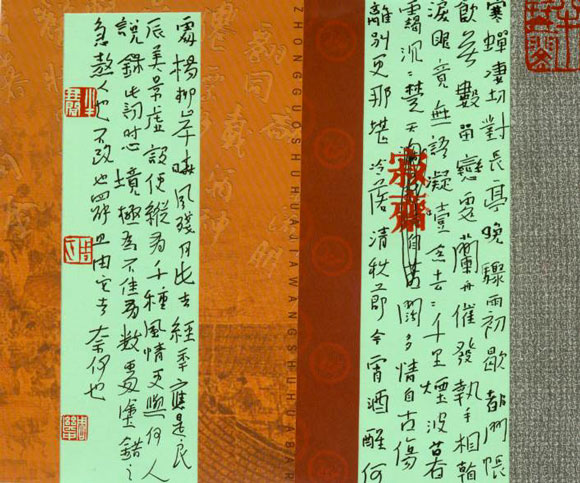 寒蟬凄切對長亭晚驟雨初歇都門帳
飲無數留戀處蘭舟催發執手相
淚眼竟無語凝噎念去去千里煙波暮
靄沉沉楚天自多情自古傷
離別更那堪冷落清秋節今宵酒醒何
寂齋
ZHONGGUOSHUHUAJIAWANGSHUHUABA
處楊柳岸曉風殘月此去經年應是良
辰美景虛設便縱有千種風情更與何人
說錄此詞時心境極為不佳有數處塗錯之
急熬人也不改也罷且由它去奈何也